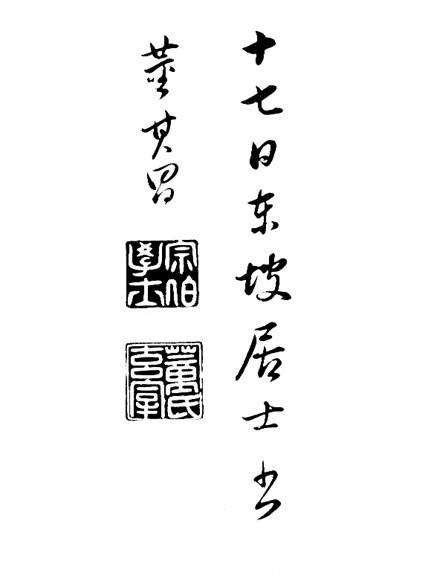 十七日東坡居士書
董其昌
宗伯學士
董氏玄宰